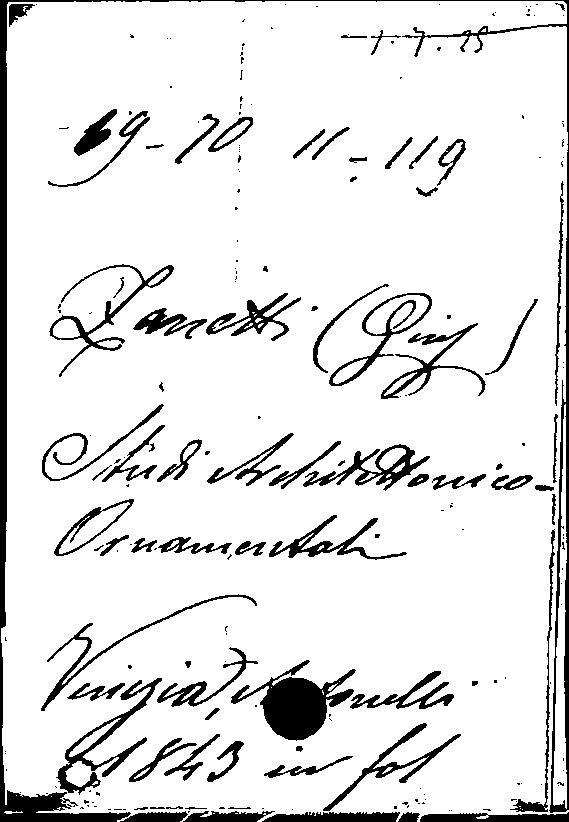 1.7.25
69-70 11-119
Zanetti (Gius)
Studi Architettonico-
Ornamentali
Venezia, Antonelli
1843 in fol